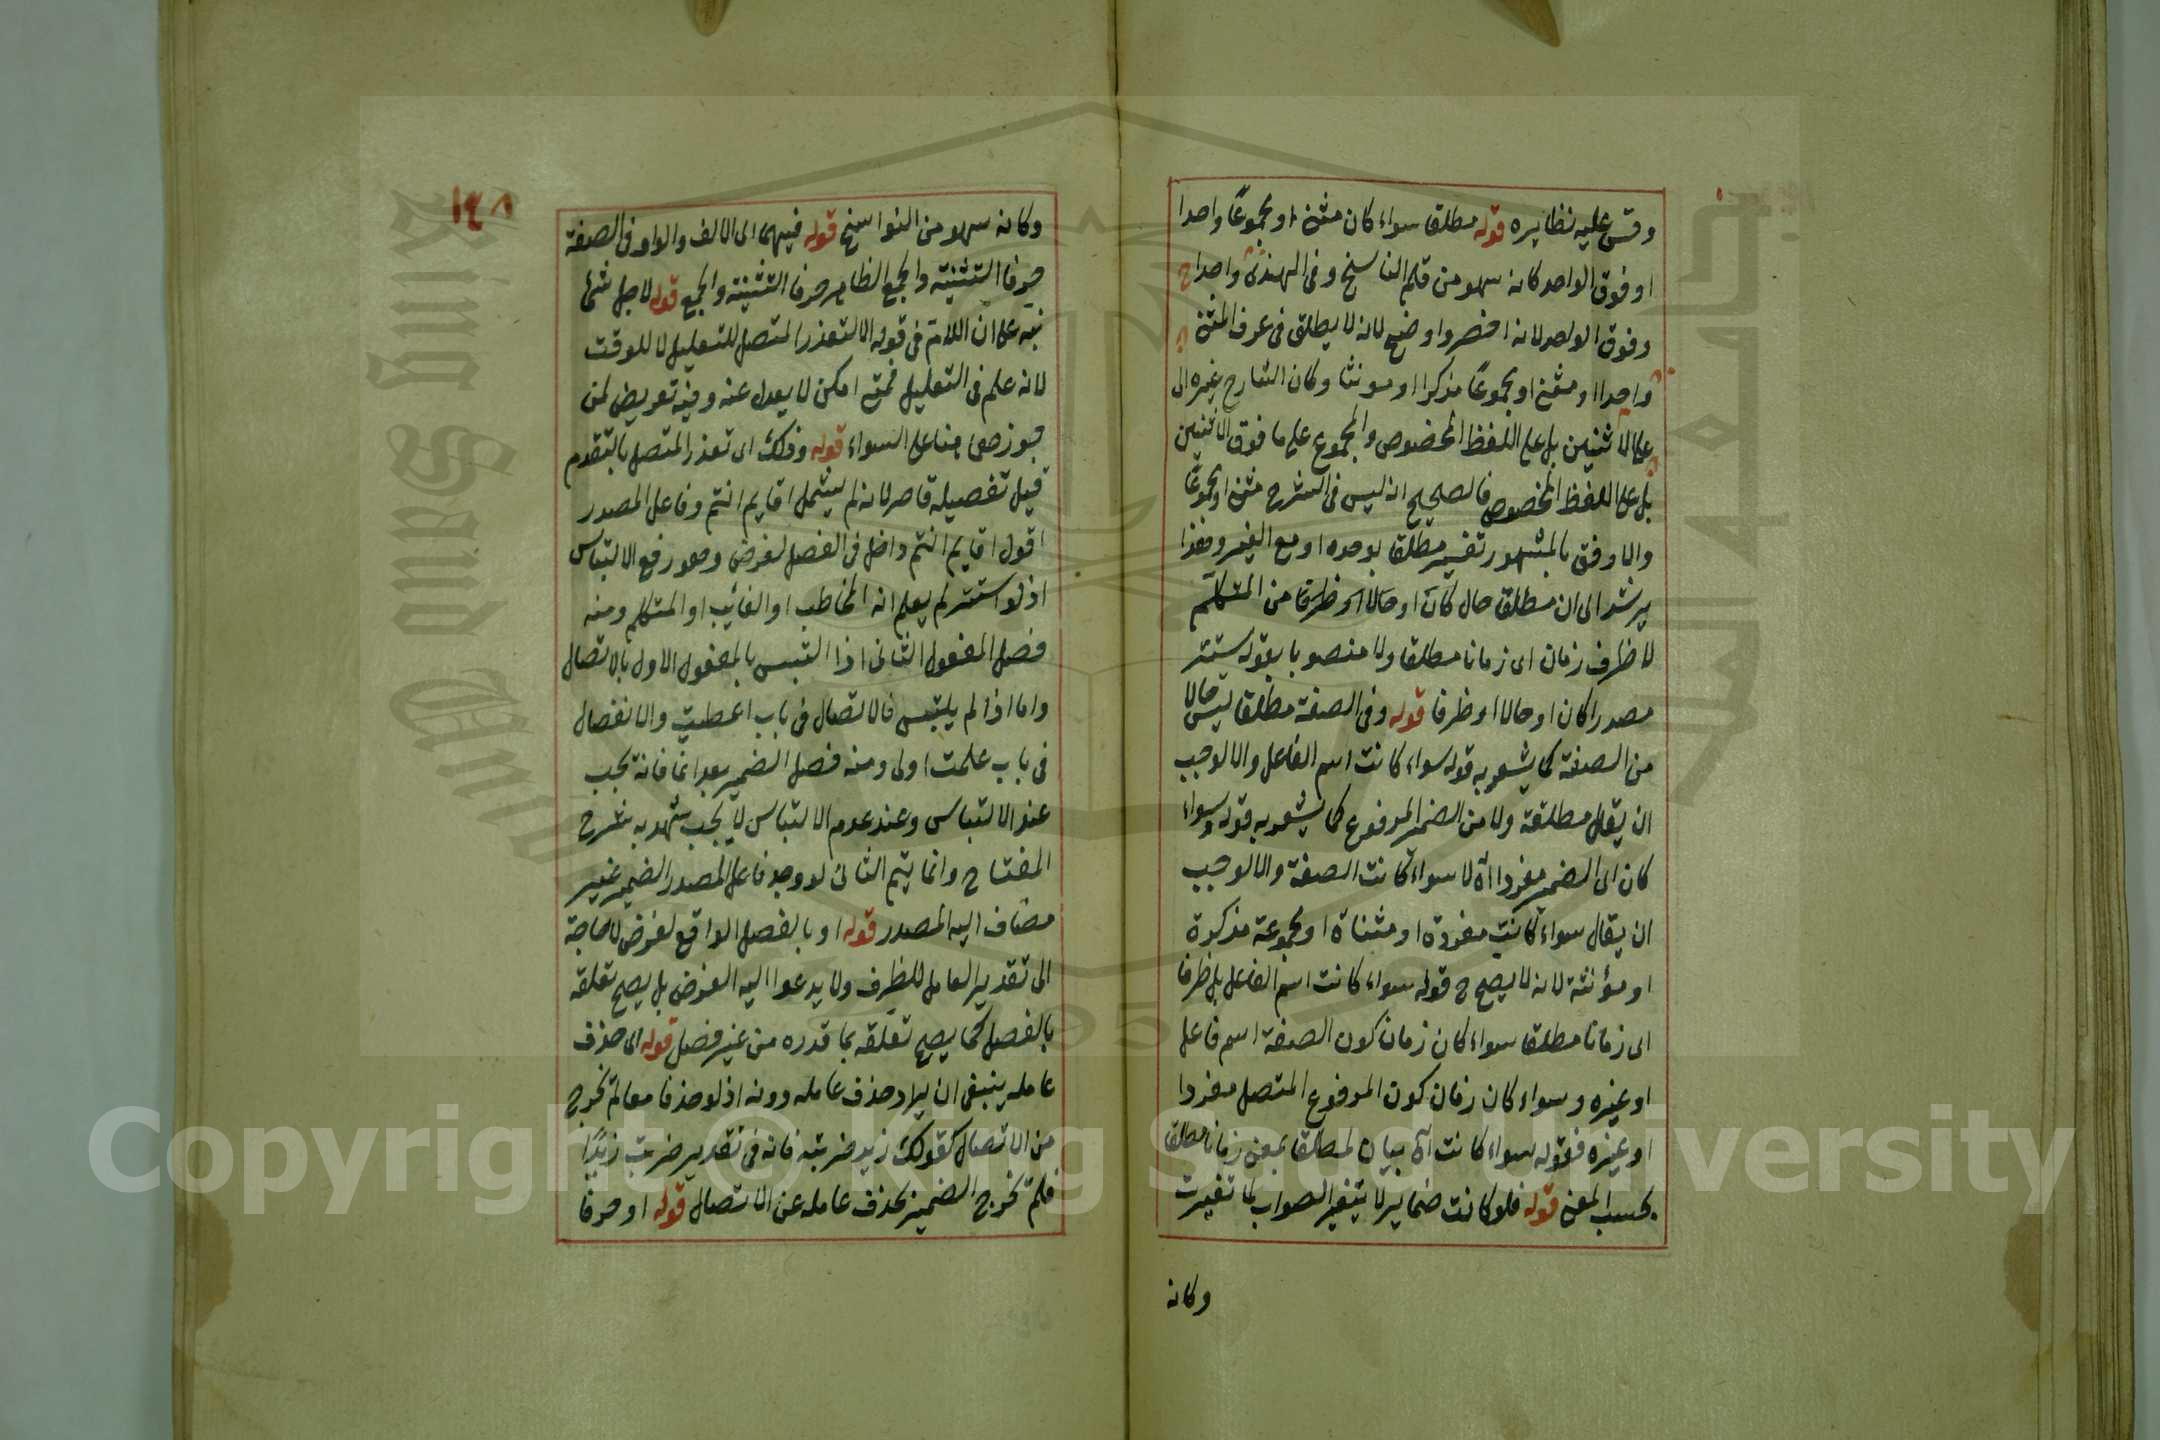 وقس عليه نظايره قوله مطلقا سواء كان مثنى او مجموعا واحدا
او فوق الواحد كانه سهو من قلم الناسخ وفى الهندى واحدا
وفوق الواحد لانه اخصر واوضح لانه لا يطلق فى عرف المثنى
واحدا او مثنى او مجموعا مذكرا او مونثا وكان الشارح غيره الى
على الاثنين بل على اللفظ المخصوص والمجموع على ما فوق الاثنين
بل على اللفظ المخصوص فالصحيح انه ليس فى الشرح مثنى او مجموعا
والاوفق بالمشهور تفسير مطلقا بوحده او مع الغير وهذا
يرشد الى ان مطلقا حال كان او حالا او ظرفا من المتكلم
لا ظرف زمان اى زمانا مطلقا ولا منصوبا بقوله يستتر
مصدرا كان او حالا او ظرفا قوله وفى الصفة مطلقا ليس حالا
من الصفة كما يشعر به قوله سواء كانت اسم الفاعل والا لوجب
ان يقال مطلقة ولا من الضمير المرفوع كما يشعر به قوله وسواء
كان اى الضمير مفردا اه لا سواء كانت الصفة والا لوجب
ان يقال سواء كانت مفردة او مثناة او مجموعة مذكرة
او مؤنثة لانه لا يصح ح قوله سواء كانت اسم الفاعل بل ظرفا
اى زمانا مطلقا سواء كان زمان كون الصفة اسم فاعل
او غيره وسواء كان زمان كون المرفوع المتصل مفردا
او غيره فقوله سواء كانت اه بيان لمطلقا بمعنى زمانا مطلقا
بحسب المعنى قوله فلو كانت ضماير لا يتغير الصواب لما تغيرت
وكانه
١٤٨
وكانه سهو من النواسخ قوله فيهما اى الالف والواو فى الصفة
حرفا التثنية والجمع الظاهر حرفا التثنية والجمع قوله لاجل شئ ما
نبه على ان اللام فى قوله الا لتعذر المتصل للتعليل لا للوقت
لانه علم فى التعليل فمتى امكن لا يعدل عنه وفيه تعريض لمن
جوزهما هنا على السواء قوله وذلك اى تعذر المتصل بالتقدم
قيل تفصيله قاصر لانه لم يشمل اقايم انتم وفاعل المصدر
اقول اقايم انتم داخل فى الفصل لغرض وهو رفع الالتباس
اذ لو استتر لم يعلم انه المخاطب او الغائب او المتكلم ومنه
فصل المفعول الثانى اذا التبس بالمفعول الاول بالاتصال
واما اذا لم يلتبس فالاتصال فى باب اعطيت والانفصال
فى باب علمت اولى ومنه فصل الضمير بعد انما فانه يجب
عند الالتباس وعند عدم الالتباس لا يجب شهد به شرح
المفتاح وانما يتم الثانى لو وجد فاعل المصدر الضمير غير
مضاف اليه المصدر قوله او بالفصل الواقع لغرض لا حاجة
الى تقدير العامل للظرف ولا يدعوا اليه الغرض بل يصح تعلقه
بالفصل كما يصح تعلقه بما قدره من غير فصل قوله اى حذف
عامله ينبغى ان يراد حذف عامله دونه اذ لو حذفا معا لم يخرج
من الاتصال كقولك زيد ضربته فانه فى تقدير ضربت زيدا
فلم يخرج الضمير بحذف عامله عن الاتصال قوله او حرفا
Copyright © King Saud University